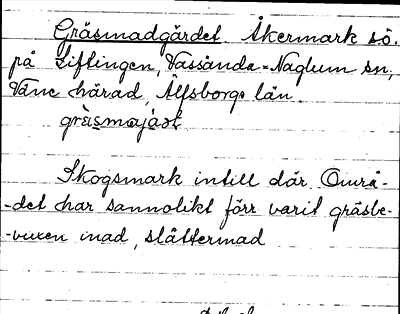 Gräsmadgärdet. Åkermark sö.
på Liflingen, Vassända-Naglum sn,
Väne härad, Älfsborgs län.
gräsmajart
Skogsmark intill där. Områ-
-det har sannolikt förr varit gräsbe-
-vuxen mad, slåttermad